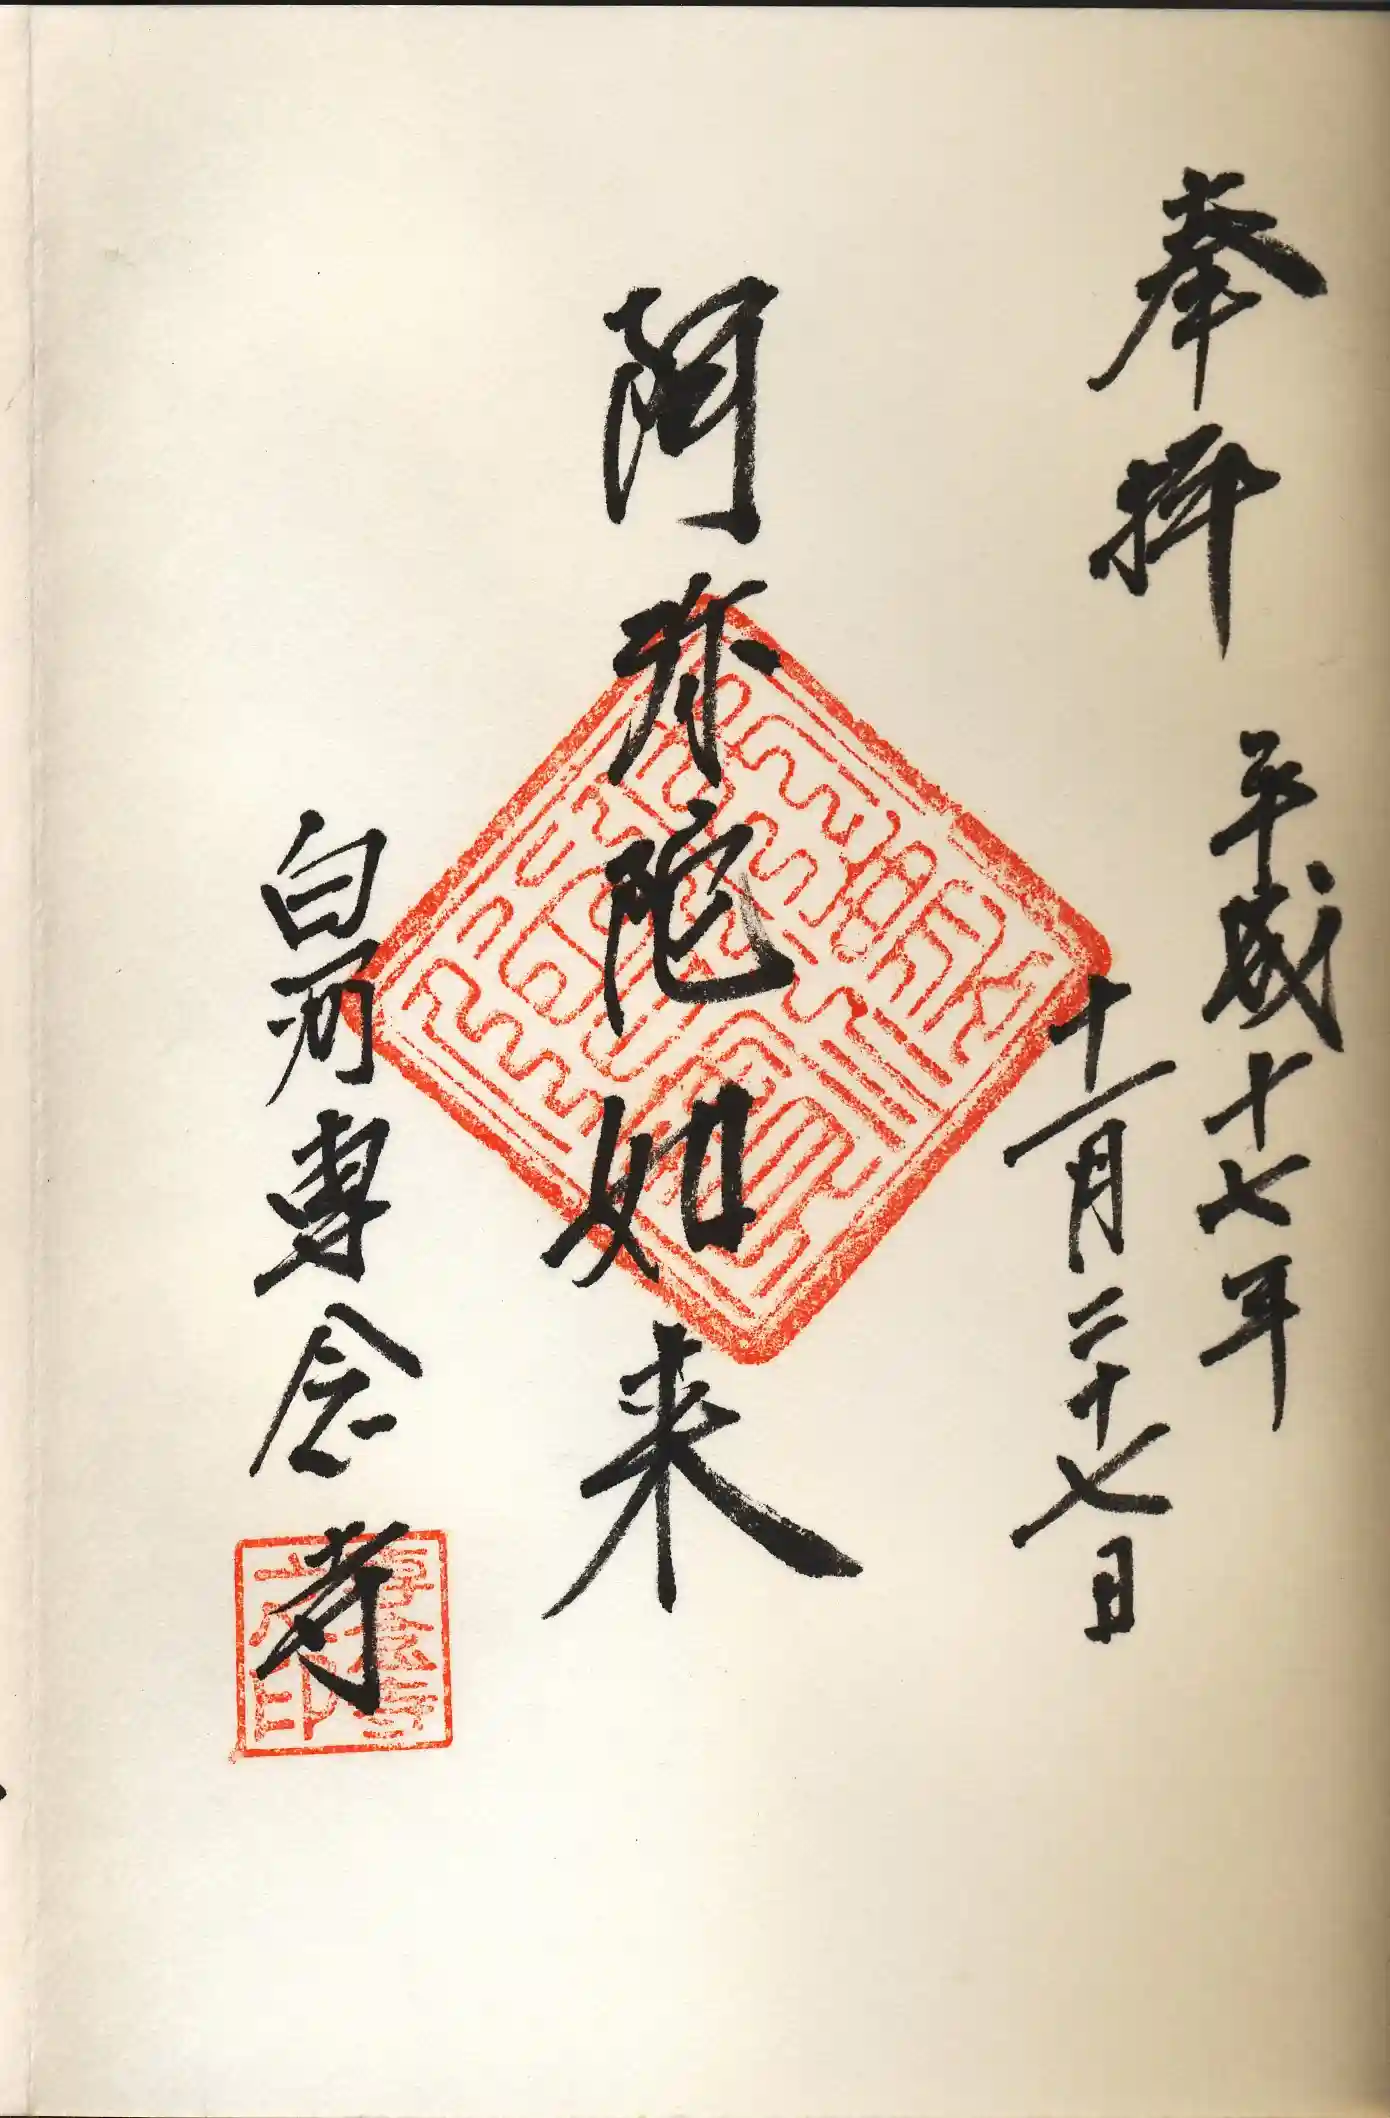 奉拝 平成十七年
十一月二十七日
阿弥陀如来
白河専念寺